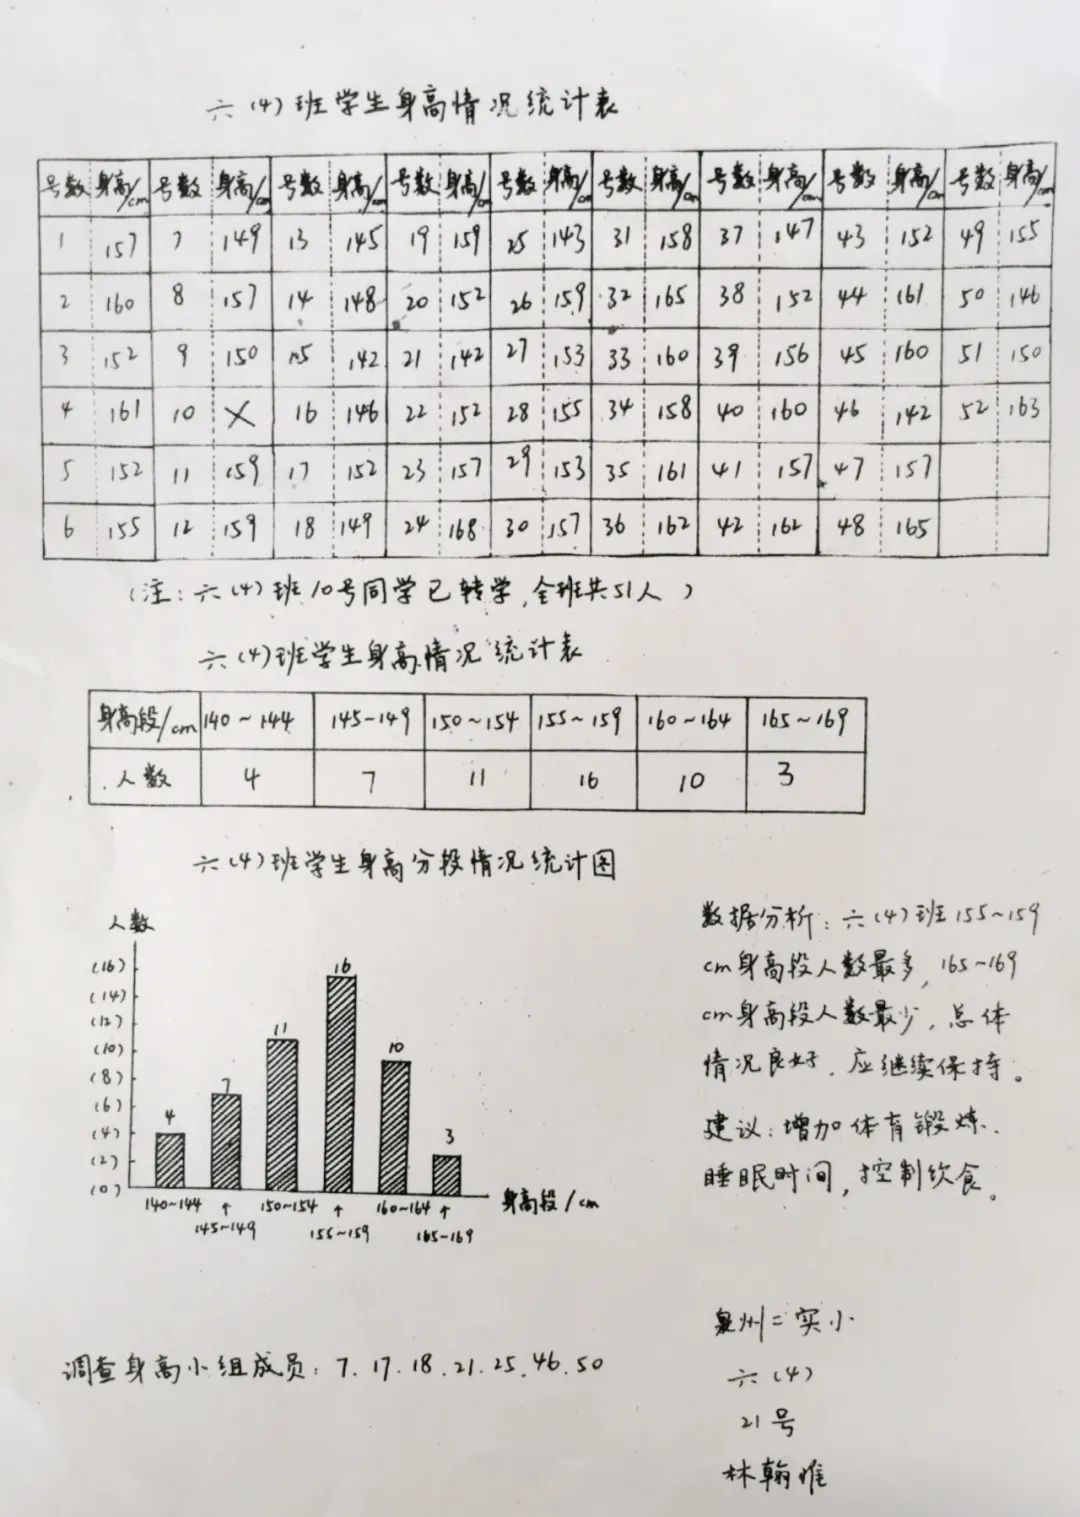 六(4)班学生身高情况统计表
号数 身高/cm 号数 身高/cm 号数 身高/cm 号数 身高/cm 号数 身高/cm 号数 身高/cm 号数 身高/cm 号数 身高/cm 号数 身高/cm
1 157 7 149 13 145 19 159 25 143 31 158 37 147 43 152 49 155
2 160 8 157 14 148 20 152 26 159 32 165 38 152 44 161 50 146
3 152 9 150 15 142 21 142 27 153 33 160 39 156 45 160 51 150
4 161 10 × 16 146 22 152 28 155 34 158 40 160 46 142 52 163
5 152 11 159 17 152 23 157 29 153 35 161 41 157 47 157
6 155 12 159 18 149 24 168 30 157 36 162 42 162 48 165
(注:六(4)班10号同学已转学,全班共51人)
六(4)班学生身高情况统计表
身高段/cm 140~144 145~149 150~154 155~159 160~164 165~169
人数 4 7 11 16 10 3
六(4)班学生身高分段情况统计图
人数
(16)
(14)
(12)
(10)
(8)
(6)
(4)
(2)
(0)
4 7 11 16 10 3
140~144 ↑ 150~154 ↑ 160~164 ↑ 身高段/cm
145~149 155~159 165~169
数据分析:六(4)班155~159
cm身高段人数最多,165~169
cm身高段人数最少,总体
情况良好,应继续保持。
建议:增加体育锻炼、
睡眠时间,控制饮食。
调查身高小组成员:7.17.18.21.25.46.50
泉州二实小
六(4)
21号
林翰惟